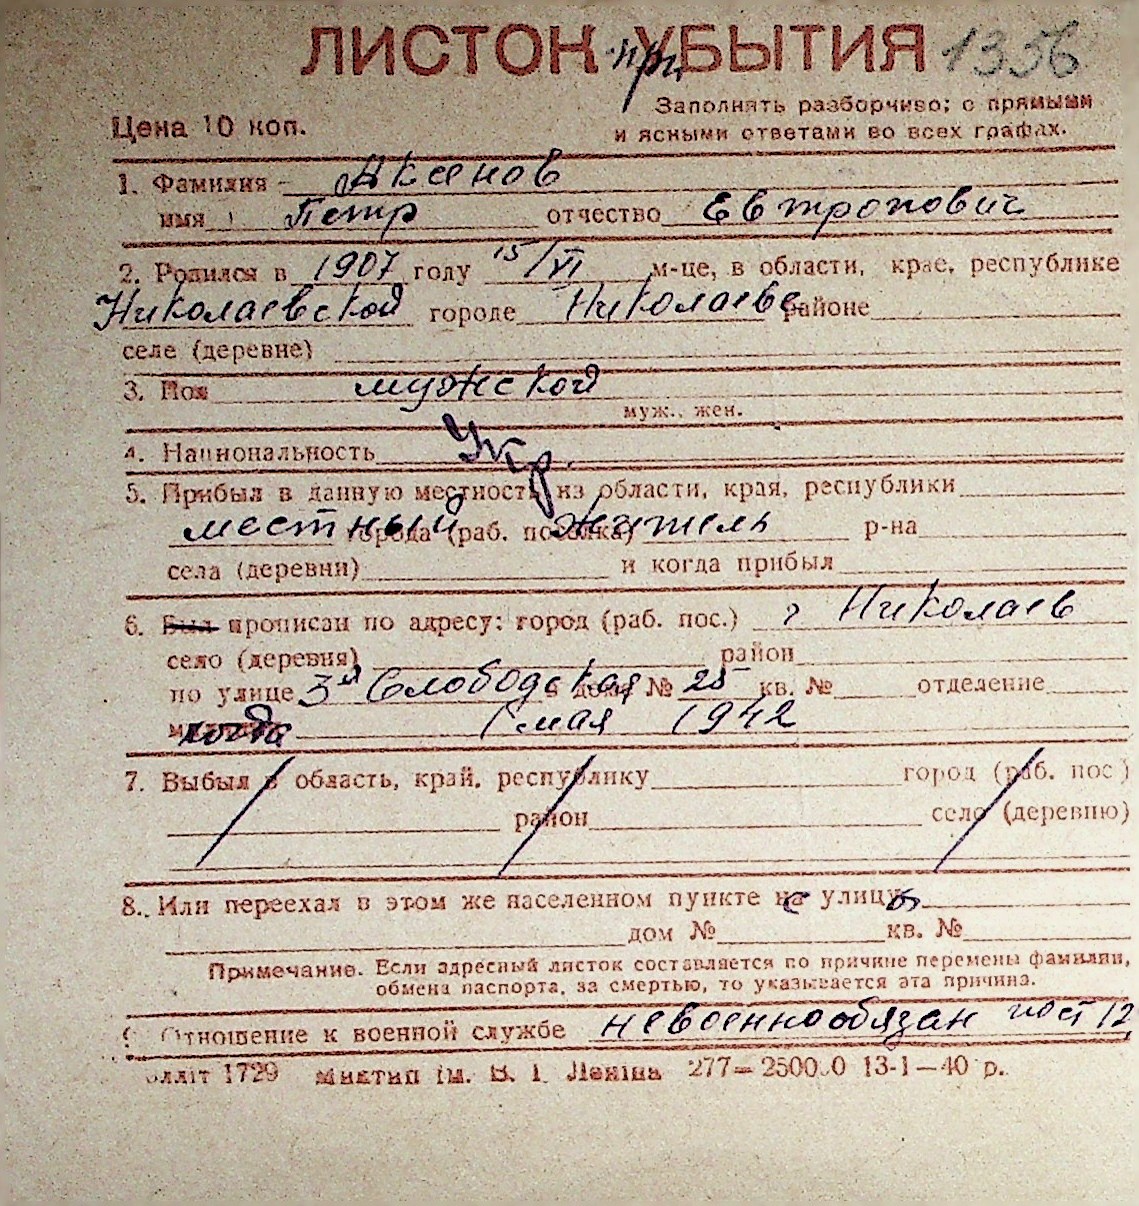 ЛИСТОК при УБЫТИЯ 1356
Заполнять разборчиво; с прямыми
Цена 10 коп. и ясными ответами во всех графах.
1. Фамилия Аксенов
имя Петр отчество Евтропович
2. Родился в 1907 году 15/VI м-це, в области, крае, республике
Николаевской городе Николаеве районе
селе (деревне)
3. Пол мужской
муж., жен.
4. Национальность Укр.
5. Прибыл в данную местность из области, края, республики
местный города (раб. поселка) житель р-на
села (деревни) и когда прибыл
6. Был прописан по адресу: город (раб. пос.) г Николаев
село (деревня) район
по улице 3я Слободская дом № 25 кв. № отделение
когда 1 мая 1942
7. Выбыл в область, край, республику город (раб. пос.)
район село (деревню)
8. Или переехал в этом же населенном пункте на улицу
дом № кв. №
Примечание. Если адресный листок составляется по причине перемены фамилии,
обмена паспорта, за смертью, то указывается эта причина.
9 Отношение к военной службе невоеннообязан пост 12
1729 ім. В. І. Леніна 277— 13-1—40 р.